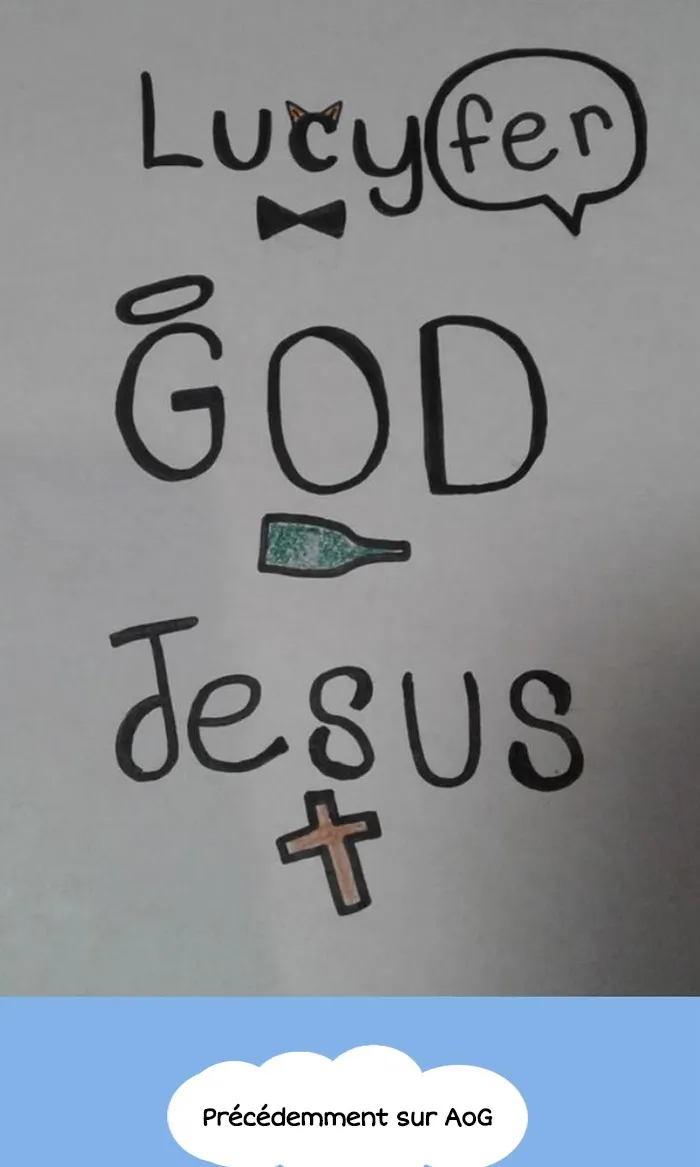 Lucyfer
GOD
Jesus
Précédemment sur AoG